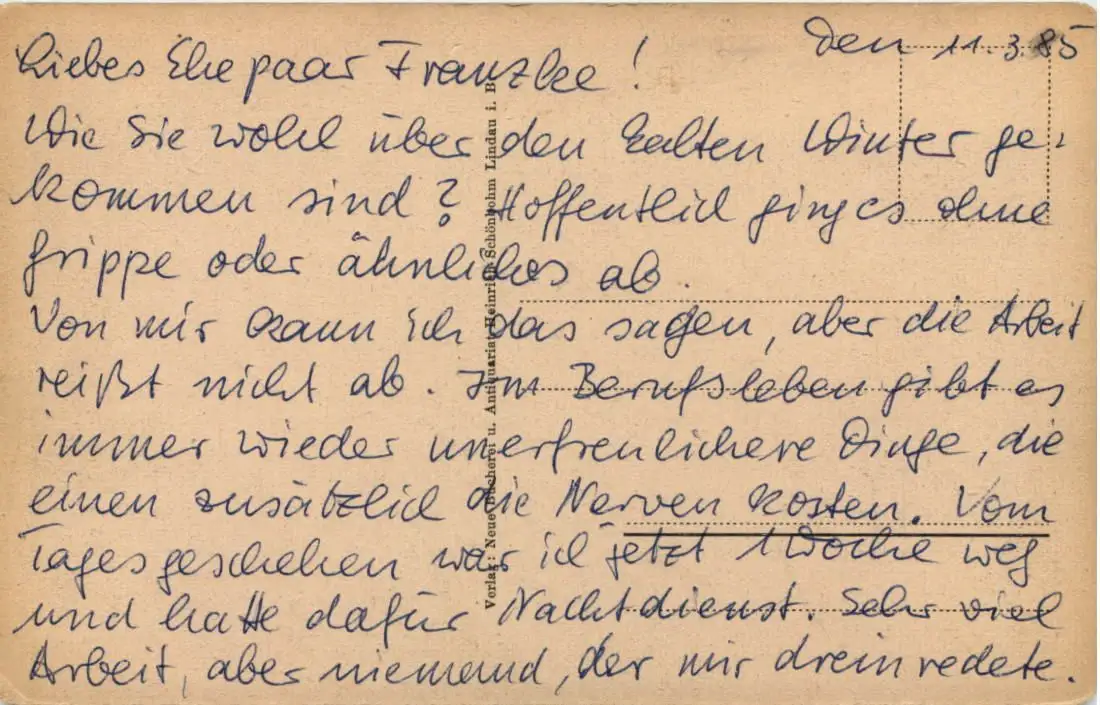 den 11.3.85
Liebes Ehepaar Franzke!
Wie Sie wohl über den kalten Winter ge-
kommen sind? Hoffentlich ging es ohne
Grippe oder ähnliches ab.
Von mir kann ich das sagen, aber die Arbeit
reißt nicht ab. Im Berufsleben gibt es
immer wieder unerfreulichere Dinge, die
einen zusätzlich die Nerven kosten. Vom
Tagesgeschehen war ich jetzt 1 Woche weg
und hatte dafür Nachtdienst. Sehr viel
Arbeit, aber niemand, der mir drein redete.
Verlag: Neue Bücherei u. Antiquariat Heinrich Schönbohm Lindau i. B.